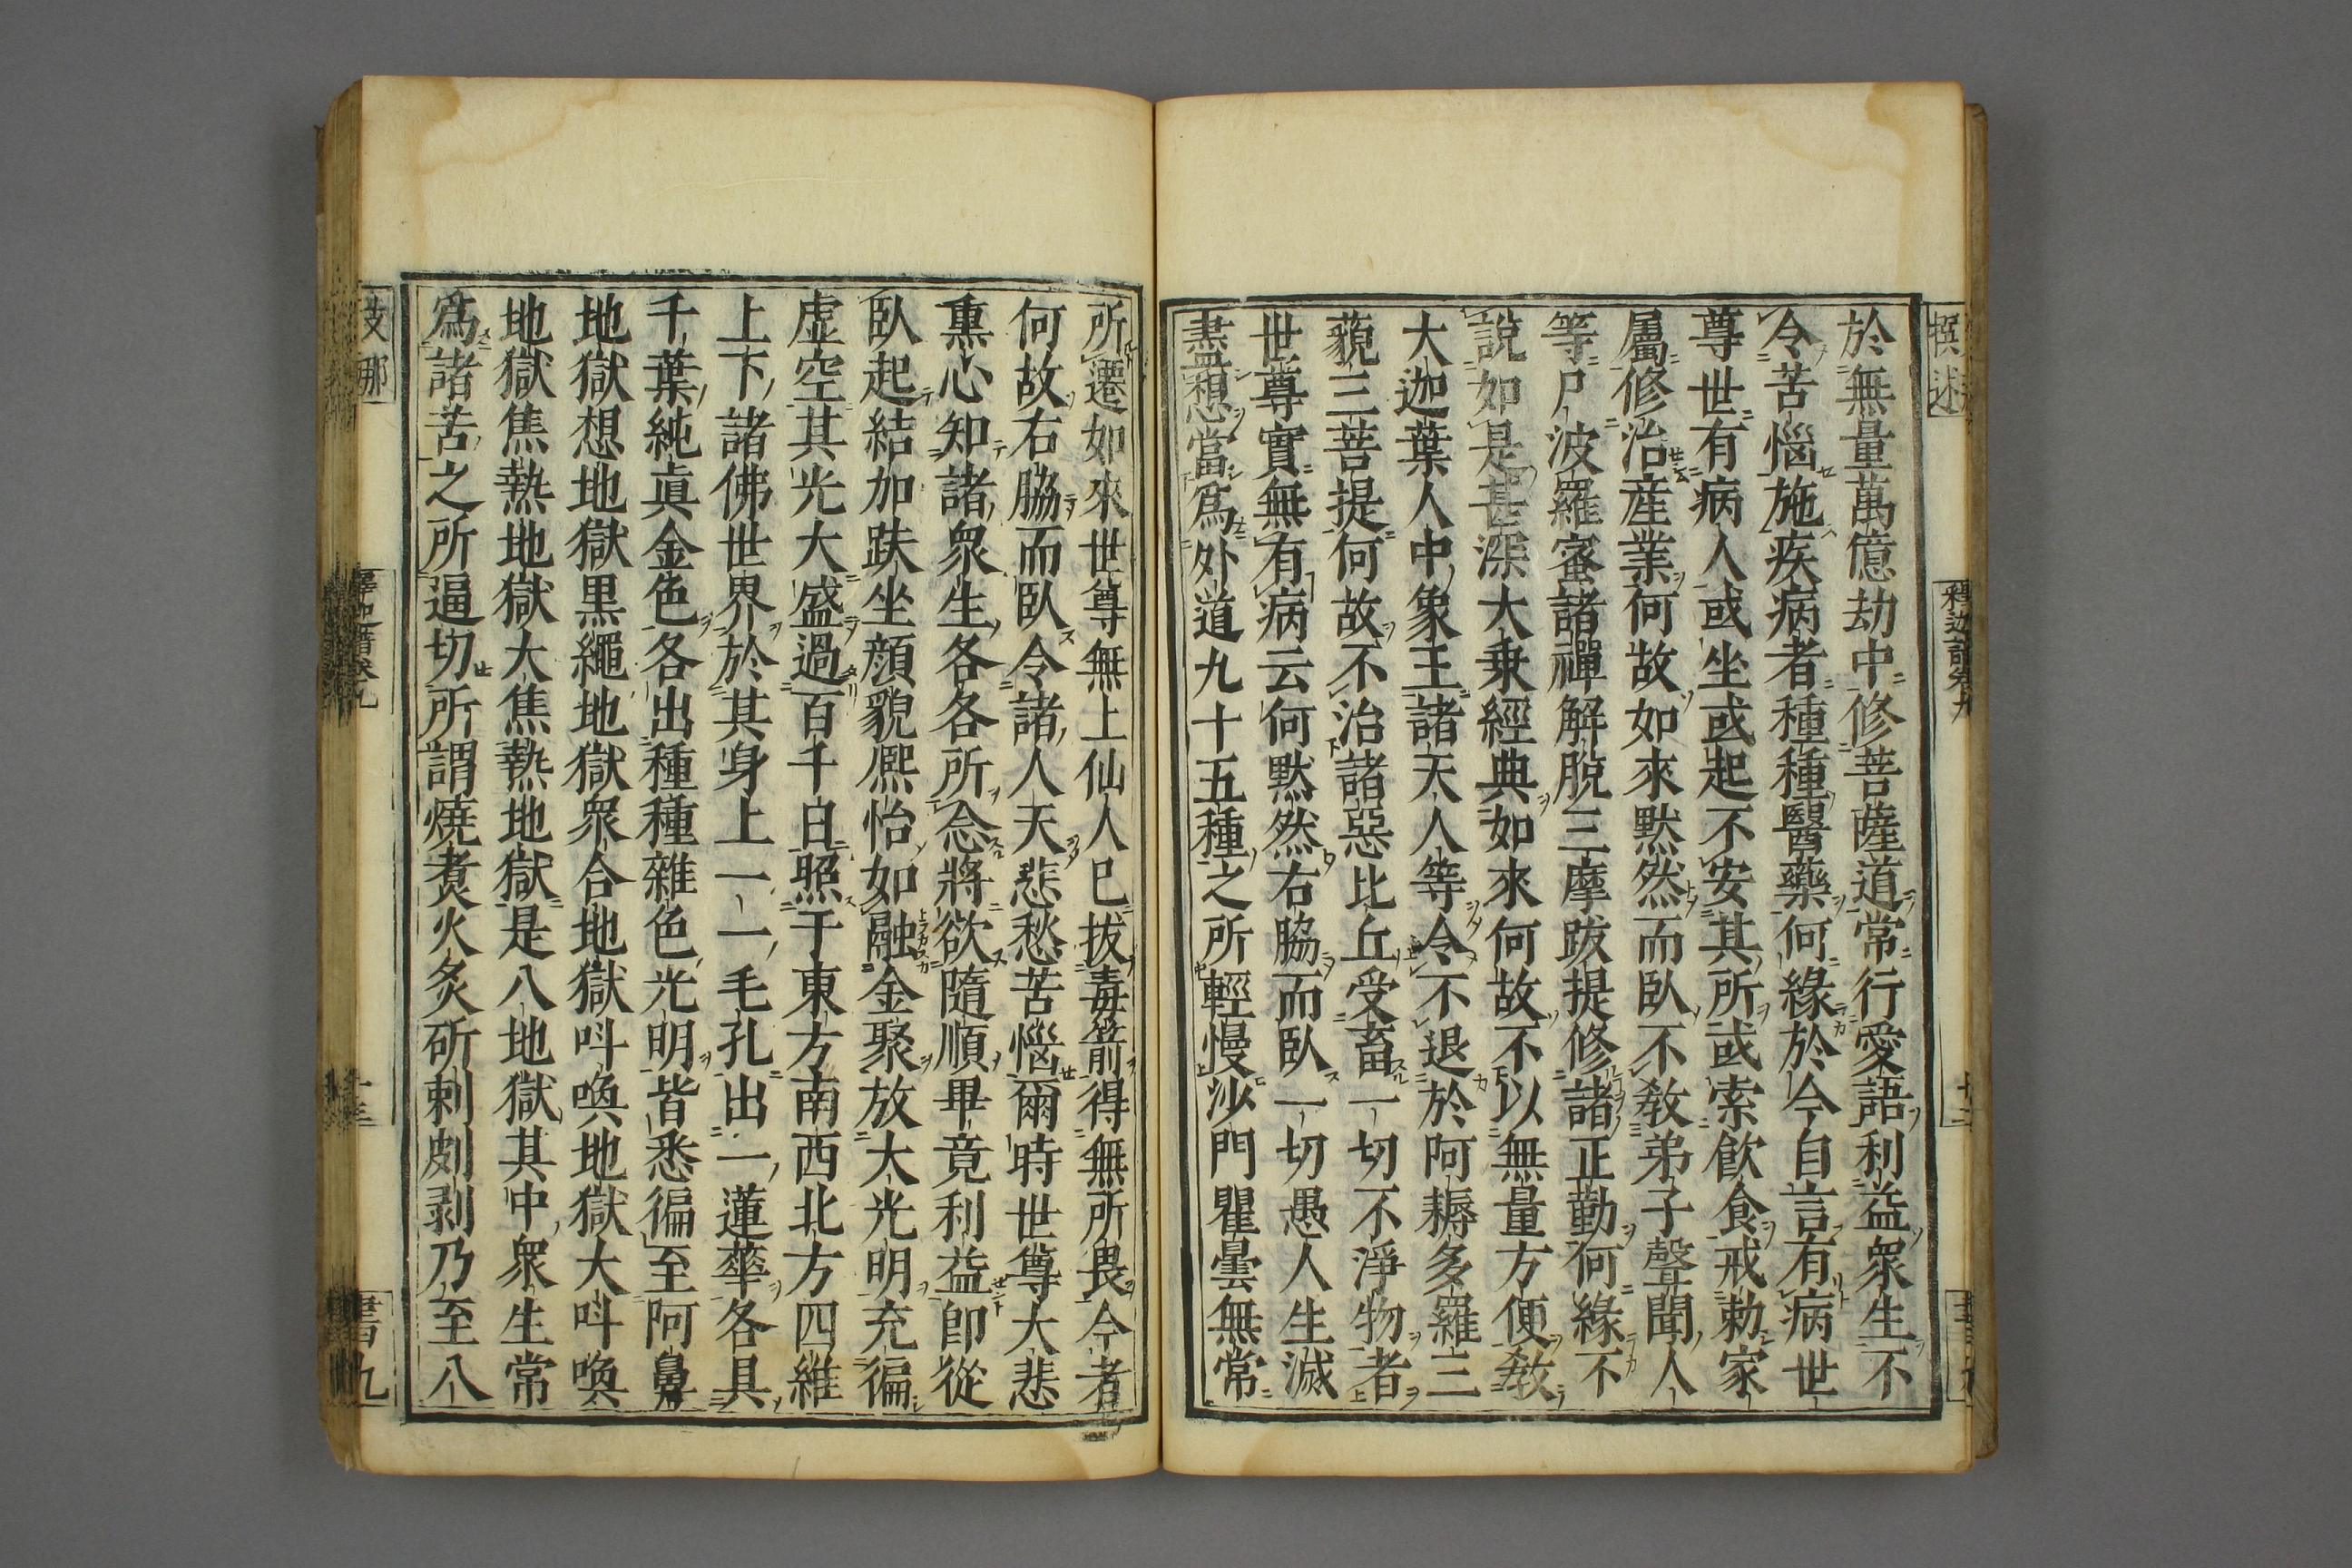 撰述
釋迦譜卷九
十二
於無量萬億劫中修菩薩道常行愛語利益眾生不
令苦惱施疾病者種種醫藥何緣於今自言有病世
尊世有病人或坐或起不安其所或索飲食戒勅家
屬修治產業何故如來默然而臥不教弟子聲聞人
等尸波羅蜜諸禪解脫三摩跋提修諸正勤何緣不
說如是甚深大乘經典如來何故不以無量方便教
大迦葉人中象王諸天人等令不退於阿耨多羅三
藐三菩提何故不治諸惡比丘受畜一切不淨物者
世尊實無有病云何默然右脇而臥一切愚人生滅
盡想當為外道九十五種之所輕慢沙門瞿曇無常
所遷如來世尊無上仙人已拔毒箭得無所畏今者
何故右脇而臥令諸人天悲愁苦惱爾時世尊大悲
熏心知諸眾生各各所念將欲隨順畢竟利益即從
臥起結加趺坐顏貌熈怡如融金聚放大光明充徧
虛空其光大盛過百千日照于東方南西北方四維
上下諸佛世界於其身上一一毛孔出一蓮華各具
千葉純眞金色各出種種雜色光明皆悉徧至阿鼻
地獄想地獄黑繩地獄眾合地獄呌喚地獄大呌喚
地獄焦熱地獄大焦熱地獄是八地獄其中眾生常
為諸苦之所逼切所謂燒煑火炙斫剌剫剥乃至八
支那
釋迦譜卷九
十三
書九